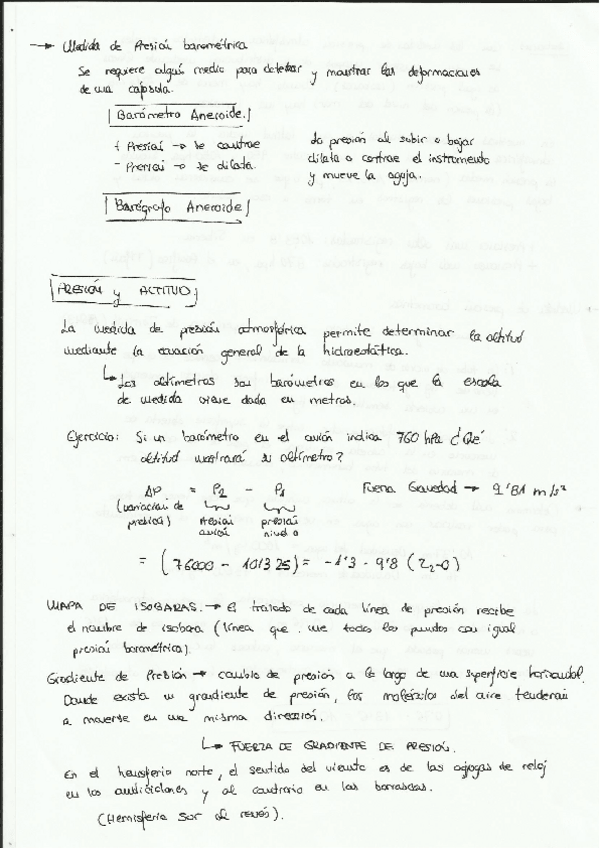 → Medida de Presión barométrica
Se requiere algún medio para detectar y mostrar las deformaciones
de una cápsula.
Barómetro Aneroide.
+ Presión → se contrae
- Presión → se dilata.
La presión al subir o bajar
dilata o contrae el instrumento
y mueve la aguja.
Barógrafo Aneroide
PRESIÓN y ALTITUD
La medida de presión atmosférica permite determinar la altitud
mediante la ecuación general de la hidroestática.
↳ Los altímetros son barómetros en los que la escala
de medida viene dada en metros.
Ejercicio: Si un barómetro en el avión indica 760 hPa ¿Qué
altitud mostrará su altímetro?
ΔP = P2 - P1 Fuerza Gravedad → 9'81 m/s²
(variación de presión) presión avión presión nivel 0
= (76000 - 101325) = -1'3 - 9'8 (Z2-0)
MAPA DE ISOBARAS. → El trazado de cada línea de presión recibe
el nombre de isobara (línea que une todos los puntos con igual
presión barométrica).
Gradiente de Presión → cambio de presión a lo largo de una superficie horizontal.
Donde exista un grandiente de presión, las moléculas del aire tenderán
a moverse en una misma dirección.
↳ FUERZA DE GRADIENTE DE PRESIÓN.
En el hemisferio norte, el sentido del viento es de las agujas de reloj
en los anticiclones y al contrario en las borrascas.
(Hemisferio Sur al revés).